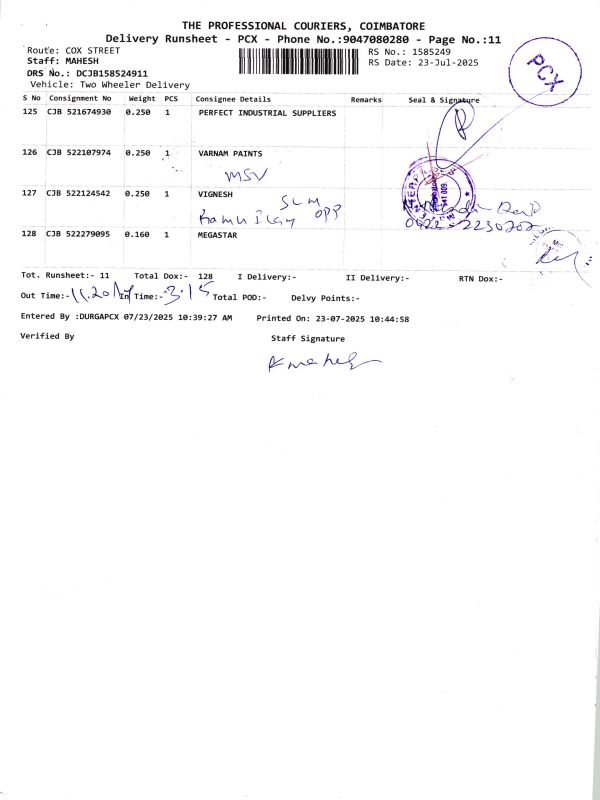 THE PROFESSIONAL COURIERS, COIMBATORE
Delivery Runsheet - PCX - Phone No.:9047080280 - Page No.:11
Route: COX STREET
Staff: MAHESH
DRS No.: DCJB158524911
Vehicle: Two Wheeler Delivery
RS No.: 1585249
RS Date: 23-Jul-2025
PCX
S No Consignment No Weight PCS Consignee Details Remarks Seal & Signature
125 CJB 521674930 0.250 1 PERFECT INDUSTRIAL SUPPLIERS
126 CJB 522107974 0.250 1 VARNAM PAINTS
MSV
127 CJB 522124542 0.250 1 VIGNESH
OPP
0422-2230202
128 CJB 522279095 0.160 1 MEGASTAR
Tot. Runsheet:- 11 Total Dox:- 128 I Delivery:- II Delivery:- RTN Dox:-
Out Time:- 11.20 In Time:- 3.15 Total POD:- Delvy Points:-
Entered By :DURGAPCX 07/23/2025 10:39:27 AM Printed On: 23-07-2025 10:44:58
Verified By Staff Signature